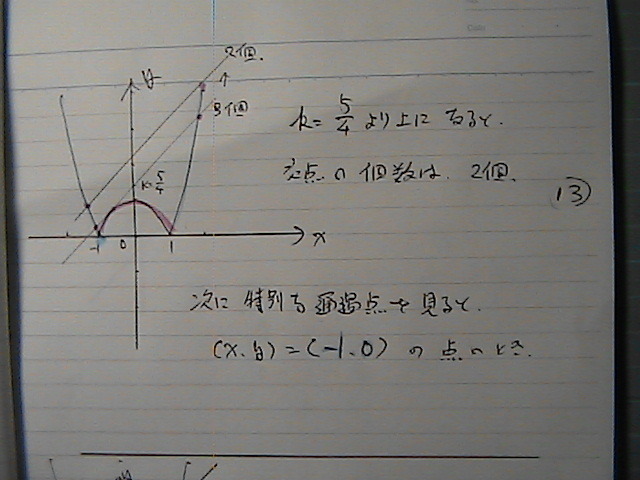 2個.
y
3個
k=5/4
-1 0 1 x
k=5/4 より上になると.
交点の個数は. 2個.
13
次に特別な通過点を見ると.
(x.y)=(-1.0) の点のとき.